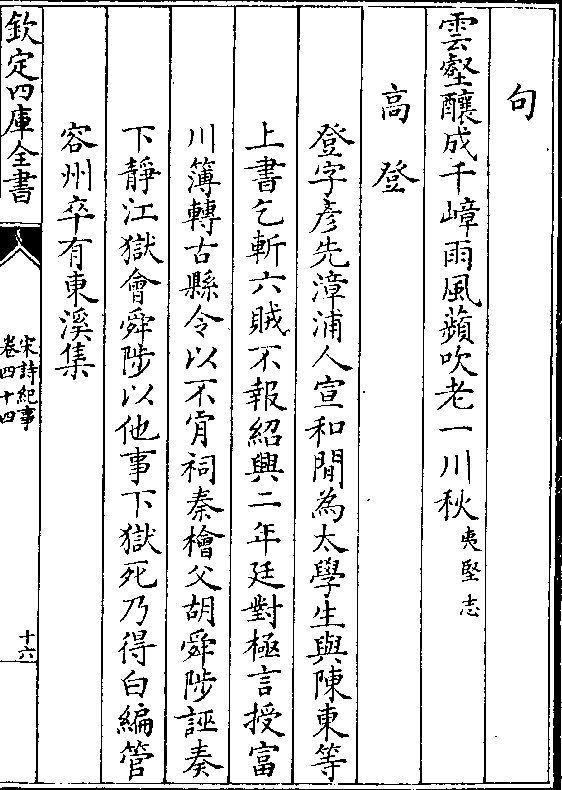 句
雲壑釀成千嶂雨風蘋吹老一川秋夷堅志
高登
登字彥先漳浦人宣和間為太學生與陳東等
上書乞斬六賊不報紹興二年廷對極言授富
川簿轉古縣令以不肯祠秦檜父胡舜陟誣奏
下靜江獄會舜陟以他事下獄死乃得白編管
容州卒有東溪集
欽定四庫全書
宋詩紀事
卷四十四
十六